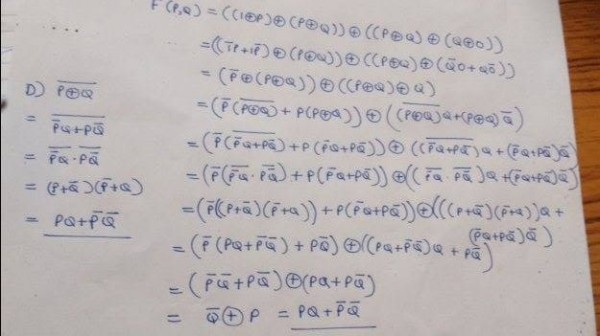 F(P,Q) = ((1⊕P)⊕(P⊕Q)) ⊕ ((P⊕Q) ⊕ (Q⊕0))
= ((1̅P+1P̅) ⊕ (P⊕Q)) ⊕ ((P⊕Q) ⊕ (Q̅0+Q0̅))
= (P̅ ⊕ (P⊕Q)) ⊕ ((P⊕Q) ⊕ Q)
= (P̅ (P⊕Q)̅ + P(P⊕Q)) ⊕ ((P⊕Q)̅ Q + (P⊕Q) Q̅)
= (P̅ (P̅Q+PQ̅)̅ + P (P̅Q+PQ̅)) ⊕ ((P̅Q+PQ̅)̅ Q + (P̅Q+PQ̅) Q̅)
= (P̅ ((P̅Q)̅ · (PQ̅)̅) + P (P̅Q+PQ̅)) ⊕ (((P̅Q)̅ · (PQ̅)̅) Q + (P̅Q+PQ̅) Q̅)
= (P̅((P+Q̅)(P̅+Q)) + P(P̅Q+PQ̅)) ⊕ (((P+Q̅)(P̅+Q))Q +
(P̅Q+PQ̅)Q̅)
= (P̅ (PQ+P̅Q̅) + PQ̅) ⊕ ((PQ+P̅Q̅)Q + PQ̅)
= (P̅Q̅+PQ̅) ⊕ (PQ+PQ̅)
= Q̅ ⊕ P = PQ+P̅Q̅
D) (P⊕Q)̅
= (P̅Q+PQ̅)̅
= (P̅Q)̅ · (PQ̅)̅
= (P+Q̅)(P̅+Q)
= PQ+P̅Q̅